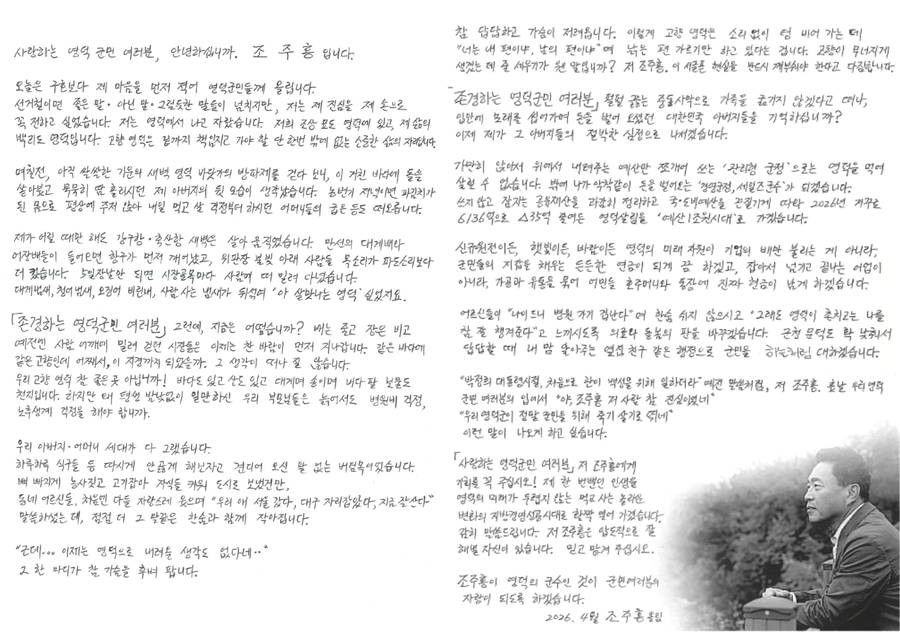 사랑하는 영덕 군민 여러분, 안녕하십니까. 조 주 홍 입니다.
오늘은 구호보다 제 마음을 먼저 적어 영덕군민들께 올립니다.
선거철이면 좋은 말·아닌 말·그럴듯한 말들이 넘치지만, 저는 제 진심을 제 손으로
꼭 전하고 싶었습니다. 저는 영덕에서 나고 자랐습니다. 저의 조상 묘도 영덕에 있고, 제 삶의
뿌리도 영덕입니다. 고향 영덕은 끝까지 책임지고 가야 할 단 한번 밖에 없는 소중한 삶의 자리입니다.
며칠전, 아직 쌀쌀한 기운의 새벽 영덕 바닷가의 방파제를 걷다 보니, 이 거친 바다에 몸을
실어놓고 묵묵히 땀 흘리시던 제 아버지의 뒷 모습이 생각났습니다. 논밭에서 저녁이면 파김치가
된 몸으로 평상에 주저 앉아 내일 먹고 살 걱정부터 하시던 어머니들의 굽은 등도 떠오릅니다.
제가 어릴 때만 해도 강구항·축산항 새벽은 살아 움직였습니다. 만선의 대게배와
어장배들이 들어오면 항구가 먼저 깨어났고, 위판장 불빛 아래 사람들 목소리가 파도소리보다
더 컸습니다. 5일장날만 되면 시장골목마다 사람에 떠 밀려 다녔습니다.
대게냄새, 청어냄새, 오징어 비린내, 사람 사는 냄새가 뒤섞여 '아 살맛나는 영덕' 싶었지요.
「존경하는 영덕군민 여러분」 그런데, 지금은 어떻습니까? 배는 줄고 장은 비고
예전엔 사람 어깨에 밀려 걷던 시장통은 이제는 찬 바람이 먼저 지나갑니다. 같은 바다에
같은 고향인데 어째서, 이 지경까지 되었을까. 그 생각이 떠나 질 않습니다.
우리 고향 영덕 참 좋은 곳 아닙니까! 바다도 있고 산도 있고 대게며 송이며 내다 팔 보물도
천지입니다. 하지만 왜 평생 밤낮없이 일만하신 우리 부모님들은 늙어서도 병원비 걱정,
노후생계 걱정을 해야 합니까.
우리 아버지·어머니 세대가 다 그랬습니다.
하루하루 식구들 등 따시게 안 굶게 해보자고 견디어 오신 말 없는 버팀목이었습니다.
뼈 빠지게 농사짓고 고기잡아 자식들 키워 도시로 보냈건만,
동네 어르신들, 처음엔 다들 자랑스레 웃으며 "우리 애 서울 갔다, 대구 자리잡았다, 지금 잘산다"
말씀하셨는데, 점점 더 그 말끝은 한숨과 함께 작아집니다.
"근데... 이제는 영덕으로 내려올 생각도 없다네··"
그 한 마디가 참 가슴을 후벼 팝니다.
참 답답하고 가슴이 저려옵니다. 이렇게 고향 영덕은 소리 없이 텅 비어 가는 데
"너는 내 편이냐, 남의 편이냐"며 낡은 편 가르기만 하고 있다는 겁니다. 고향이 무너지게
생겼는 데 줄 세우기가 웬 말입니까? 저 조주홍. 이 서글픈 현실을 반드시 깨부숴야 한다고 다짐합니다.
「존경하는 영덕군민 여러분」 펄펄 끓는 중동사막으로 가족을 굶기지 않겠다고 떠나,
입안에 모래를 씹어가며 돈을 벌어 오셨던 대한민국 아버지들을 기억하십니까?
이제 제가 그 아버지들의 절박한 심정으로 나서겠습니다.
가만히 앉아서 위에서 내려주는 예산만 쪼개어 쓰는 '관리형 군정'으로는 영덕을 먹여
살릴 수 없습니다. 밖에 나가 악착같이 돈을 벌어오는 '경영군정, 세일즈군수'가 되겠습니다.
쓰지 않고 잠자는 공유재산을 과감히 정리하고 국·도비예산을 끈질기게 따와 2026년 겨우
6136억으로 △35억 줄어든 영덕살림을 '예산 1조원시대'로 가겠습니다.
신규원전이든, 햇빛이든, 바람이든 영덕의 미래 자원이 기업의 배만 불리는 게 아니라,
군민들의 지갑을 채우는 든든한 연금이 되게 끔 하겠고, 잡아서 넘기고 끝나는 어업이
아니라, 가공과 유통을 묶어 어민들 호주머니와 통장에 진짜 현금이 남게 하겠습니다.
어르신들이 "나이드니 병원 가기 겁난다"며 한숨 쉬지 않으시고 "그래도 영덕이 촌치고는 나를
참 잘 챙겨준다"고 느끼시도록 의료와 돌봄의 판을 바꾸겠습니다. 군청 문턱도 확 낮춰서
답답할 때 내 맘 알아주는 옆집 친구 같은 행정으로 군민을 하늘처럼 대하겠습니다.
"박정희 대통령시절, 처음으로 관이 백성을 위해 일하더라" 예전 말씀처럼, 저 조주홍. 훗날 우리영덕
군민 여러분의 입에서 "야, 조주홍 저 사람 참 진심이었네"
"우리 영덕군이 정말 군민을 위해 죽기 살기로 뛰네"
이런 말이 나오게 하고 싶습니다.
「사랑하는 영덕군민 여러분」 저 조주홍에게
기회를 꼭 주십시오! 제 한 번뿐인 인생을
영덕의 미래가 두렵지 않은 먹고 사는
변화의 지방경영성공시대로 활짝 열어 가겠습니다.
감히 말씀드립니다. 저 조주홍은 압도적으로 잘
해낼 자신이 있습니다. 믿고 맡겨 주십시오.
조주홍이 영덕의 군수인 것이 군민여러분의
자랑이 되도록 하겠습니다.
2026. 4월 조주홍 올림